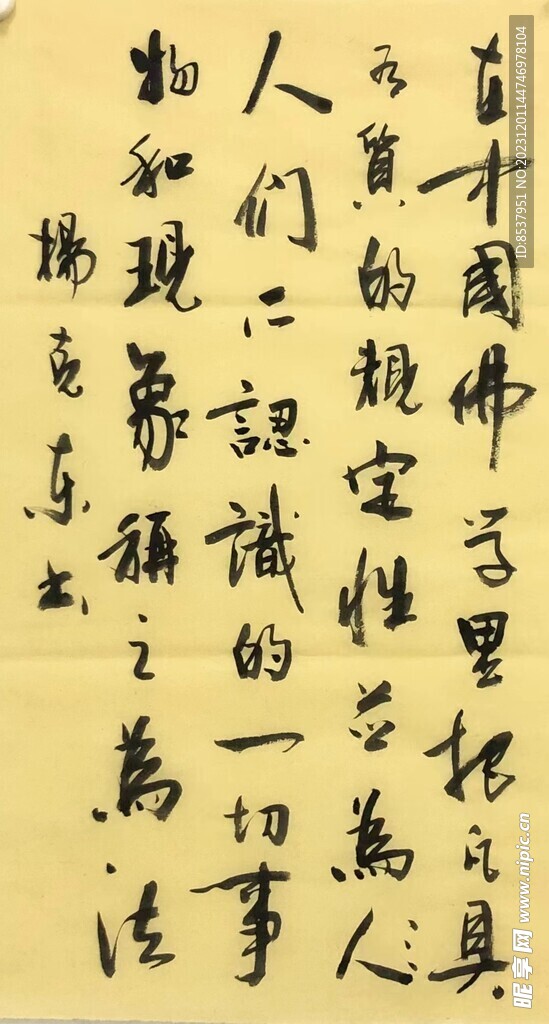 在中國佛学里把凡具
有質的規定性並為人
人们所認識的一切事
物和現象稱之為法
楊克東书
ID:8537951 NO:20231201144746978104
昵享网 www.nipic.cn